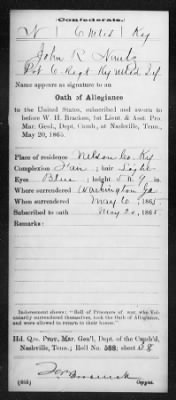 Confederate.
N | 6 Mtd | Ky
John R
Pvt C Regt Ky Mtd Inf
Name appears as signature to an
Oath of Allegiance
to the United States, subscribed and sworn to
before W. H. Bracken, 1st Lieut. & Asst. Pro.
Mar. Genl., Dept. Cumb., at Nashville, Tenn.,
May 20, 1865.
Place of residence Nelson Co Ky
Complexion Fair ; hair Light
Eyes Blue ; height 5 ft. 9 in.
Where surrendered Washington Ga
When surrendered May 6, 1865.
Subscribed to oath May 20, 1865
Remarks:
Indorsement shows: "Roll of Prisoners of war, who vol-
untarily surrendered themselves, took the Oath of Allegiance,
and were allowed to return to their homes."
Hd. Qrs. Prov. Mar. Gen'l, Dept. of the Cumb'd,
Nashville, Tenn.; Roll No. 588; sheet 28
(655)
Copyist.